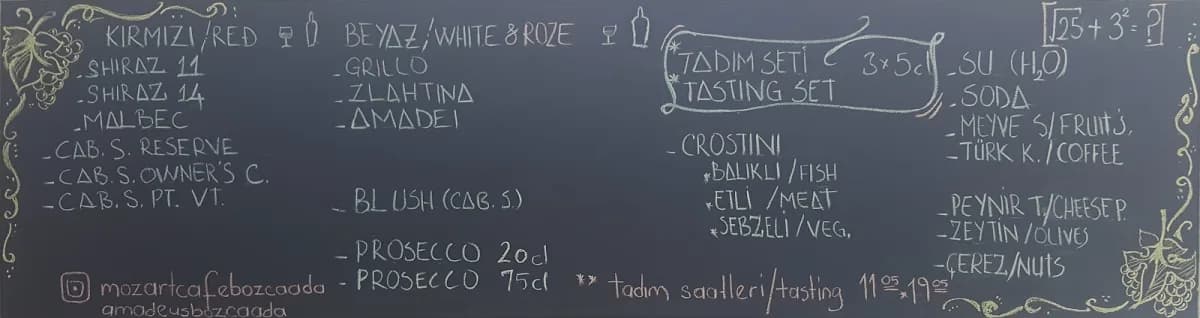 KIRMIZI/RED
- SHIRAZ 11
- SHIRAZ 14
- MALBEC
- CAB. S. RESERVE
- CAB. S. OWNER'S C.
- CAB. S. PT. VT.
mozartcafebozcaada
amadeusbozcaada
BEYAZ/WHITE & ROZE
- GRILLO
- ZLAHTINA
- AMADEI
- BLUSH (CAB. S)
- PROSECCO 20cl
- PROSECCO 75cl
* TADIM SETİ 3*5cl
* TASTING SET
- CROSTINI
* BALIKLI/FISH
* ETLİ /MEAT
* SEBZELİ/VEG.
** tadım saatleri/tasting 11 05 * 19 05
√25 + 3² = ?
- SU (H₂O)
- SODA
- MEYVE S/FRUIT J.
- TÜRK K./COFFEE
- PEYNİR T./CHEESE P.
- ZEYTİN/OLIVES
- ÇEREZ/NUTS